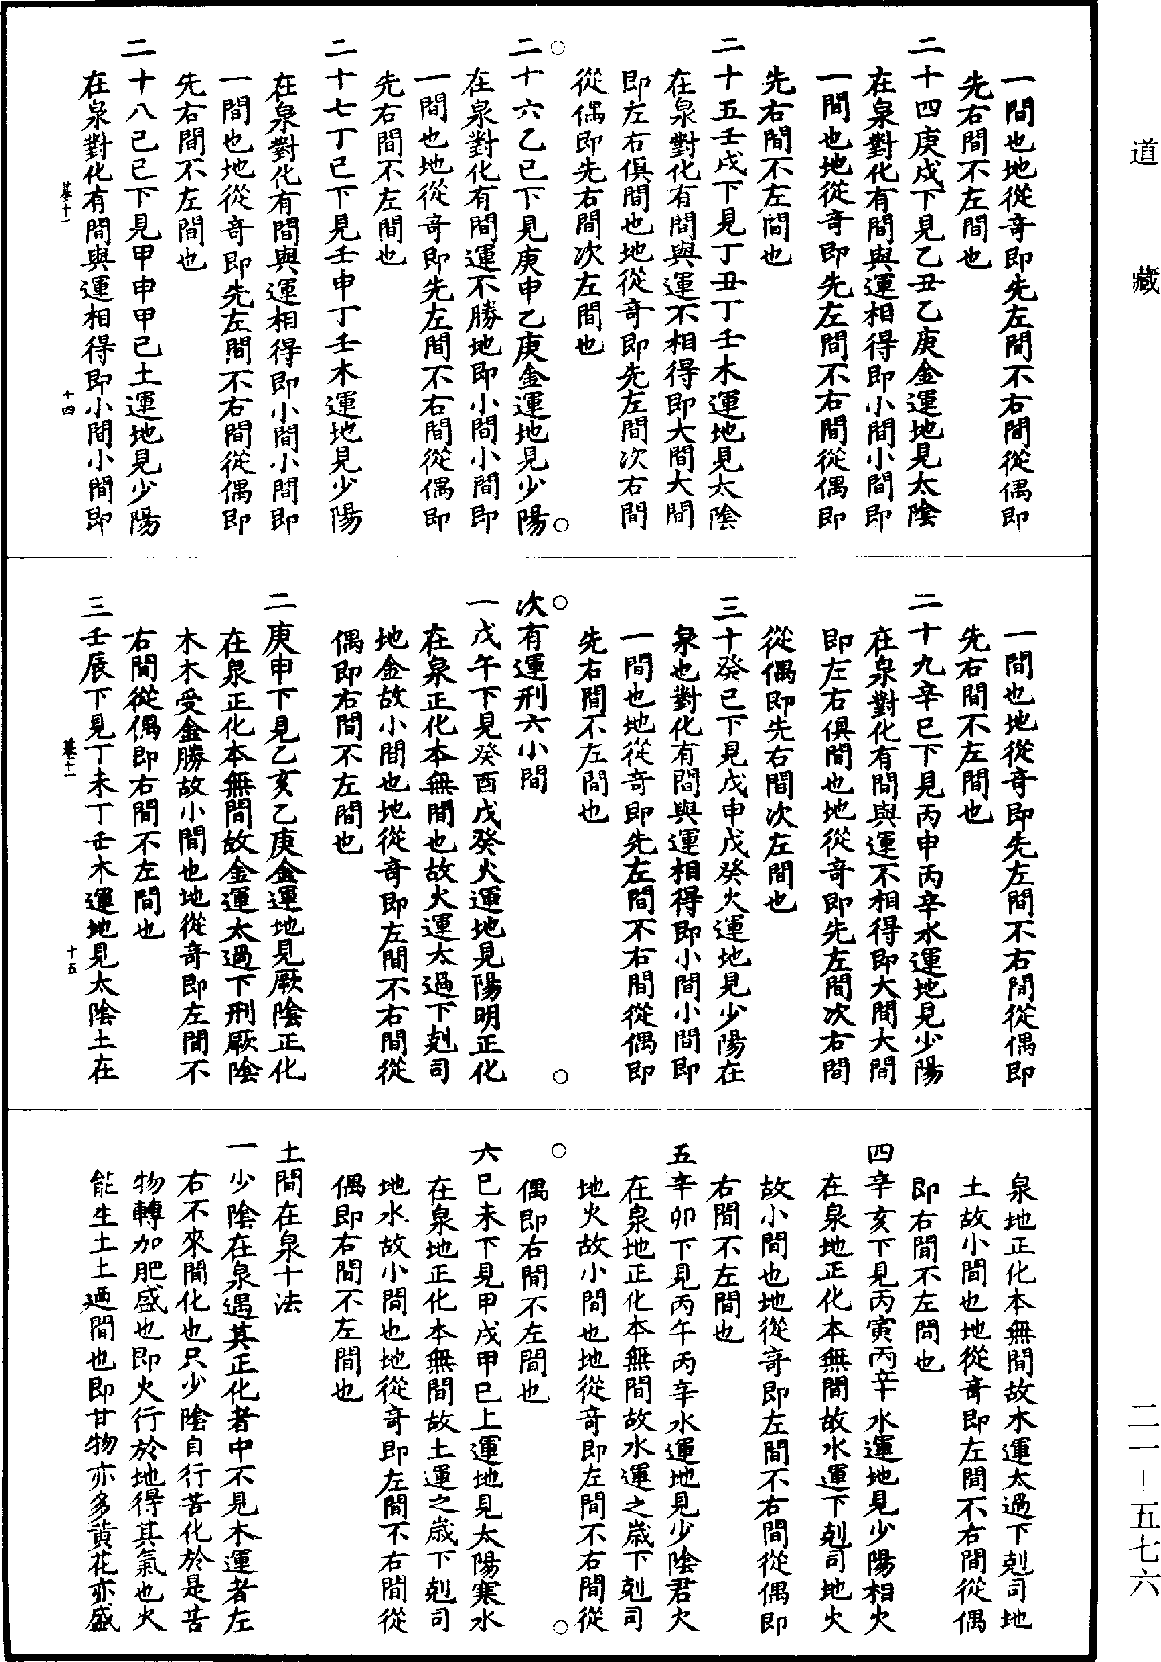 道藏
二一—五七六
一間也地從奇即先左間不右間從偶即
先右間不左間也
二十四庚戌下見乙丑乙庚金運地見太陰
在泉對化有間與運相得即小間小間即
一間也地從奇即先左間不右間從偶即
先右間不左間也
二十五壬戌下見丁丑丁壬木運地見太陰
在泉對化有間與運不相得即大間大間
即左右俱間也地從奇即先左間次右間
從偶即先右間次左間也
二十六乙巳下見庚申乙庚金運地見少陽
在泉對化有間運不勝地即小間小間即
一間也地從奇即先左間不右間從偶即
先右間不左間也
二十七丁巳下見壬申丁壬木運地見少陽
在泉對化有間與運相得即小間小間即
一間也地從奇即先左間不右間從偶即
先右間不左間也
二十八己巳下見甲申甲己土運地見少陽
在泉對化有間與運相得即小間小間即
十四
一間也地從奇即先左間不右間從偶即
先右間不左間也
二十九辛巳下見丙申丙辛水運地見少陽
在泉對化有間與運不相得即大間大間
即左右俱間也地從奇即先左間次右間
從偶即先右間次左間也
三十癸巳下見戊申戊癸火運地見少陽在
泉也對化有間與運相得即小間小間即
一間也地從奇即先左間不右間從偶即
先右間不左間也
次有運刑六小間
一戊午下見癸酉戊癸火運地見陽明正化
在泉正化本無間也故火運太過下剋司
地金故小間也地從奇即左間不右間從
偶即右間不左間也
二庚申下見乙亥乙庚金運地見厥陰正化
在泉正化本無間故金運太過下刑厥陰
木木受金勝故小間也地從奇即左間不
右間從偶即右間不左間也
三壬辰下見丁未丁壬木運地見太陰土在
十五
泉地正化本無間故木運太過下剋司地
土故小間也地從奇即左間不右間從偶
即右間不左間也
四辛亥下見丙寅丙辛水運地見少陽相火
在泉地正化本無間故水運下剋司地火
故小間也地從奇即左間不右間從偶即
右間不左間也
五辛卯下見丙午丙辛水運地見少陰君火
在泉地正化本無間故水運之歲下剋司
地火故小間也地從奇即左間不右間從
偶即右間不左間也
六己未下見甲戌甲己土運地見太陽寒水
在泉地正化本無間故土運之歲下剋司
地水故小間也地從奇即左間不右間從
偶即右間不左間也
土間在泉十法
一少陰在泉遇其正化者中不見木運者左
右不來間化也只少陰自行苦化於是苦
物轉加肥盛也即火行於地得其氣也火
能生土土迺間也即甘物亦多黃花亦盛